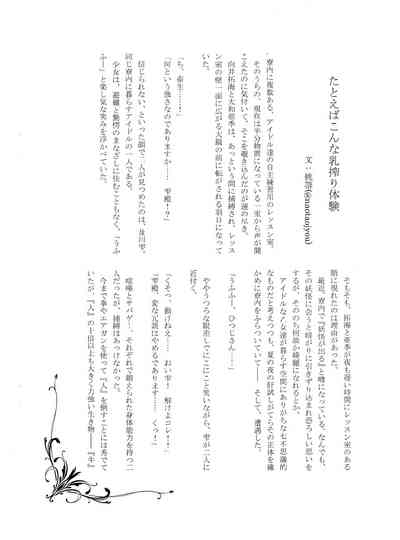 たとえばこんな乳搾り体験
寮内に複数ある、アイドル達の自主練習用のレッスン室。
そのうちの、現在は半分物置になっている一室から声が聞
こえたのに気付いて、そこを覗き込んだのが運の尽き。
向井拓海と大和亜季は、あっという間に捕縛され、レッス
ン室の壁一面に広がる大鏡の前に転がされる羽目になって
いた。
「ち、畜生……！」
「何という強さなのでありますか……雫殿……？」
信じられない、といった顔で二人が見つめたのは、及川雫。
同じ寮内に暮らすアイドルの一人である。
少女は、萎縮と驚愕のまなざしに怯むこともなく、「うふ
ふー」と楽し気な笑みを浮かべていた。
そもそも、拓海と亜季が夜も遅い時間にレッスン室のある
階に現れたのは理由があった。
最近、寮内で『妖怪が出る』と噂になっている。なんでも、
その妖怪に会うと暗がりに引きずり込まれ恐ろしい思いを
するが、そののち何故か綺麗になれるとか。
アイドルな乙女達が暮らす空間にありがちな七不思議的
なものだと考えつつも、夏の夜の肝試しがてらその正体を確
かめに寮内をふらついていて――そして、遭遇した。
「うふふー！ ひつじさん……」
ややうつろな眼差しでにこにこと笑いながら、雫が二人に
近付く。
「くそっ、動けねえ！ おい雫！ 解けよコレ！」
「雫殿、変な冗談はやめるであります！……くっ！」
喧嘩とサバゲ…それぞれで鍛えられた身体能力を持つ二
人だったが、捕縛はあっけなかった。
今まで拳やエアガンを使って『人』を倒すことには秀でて
いたが、『人』の十倍以上も大きく力強い生き物――『牛』